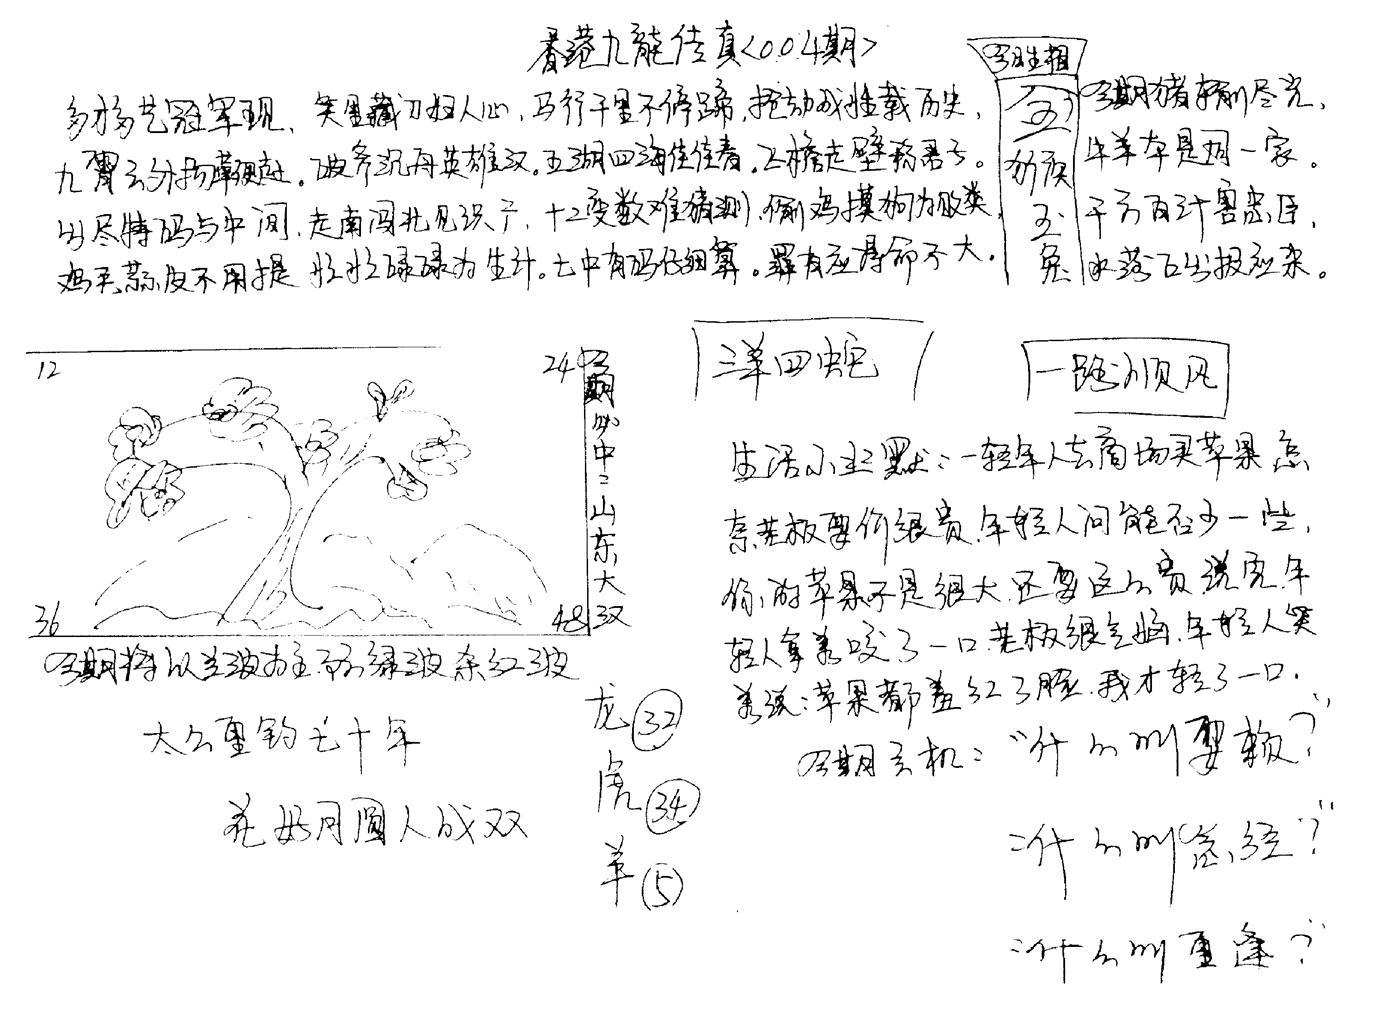 香港九龙传真<004期>
多才多艺冠军现、笑里藏刀扫人心，马行千里不停蹄，抢劫成性载历史，
九霄云外扬鞭起。破斧沉舟英雄汉。五湖四海佳佳春。飞檐走壁称君子。
出尽特码与中间，走南闯北见识广，十二变数难猜测，偷鸡摸狗为败类，
鸡毛蒜皮不用提 忙忙碌碌为生计。七中有码仔细算。罪有应得命不大。
今日生相
金
猴
玉
兔
今期猪 尽光，
牛羊本是同一家。
千方百计害忠臣，
水落石出报应来。
三羊四蛇
一路顺风
12
24
36
48
今期必中二山东大双
今期将以兰波为主 绿波杀红波
太公垂钓七十年
花好月圆人成双
龙 32
虎 34
羊 5
生活小幽默：一轻年人去商场买苹果怎
奈老板要价很贵.年轻人问能否少一些，
你的苹果不是很大.还要这么贵.说完.年
轻人拿着咬了一口.老板很气恼.年轻人笑
着说：苹果都羞红了脸.我才轻了一口.
今期玄机："什么叫耍赖？"
：什么叫念经？"
：什么叫重逢？"